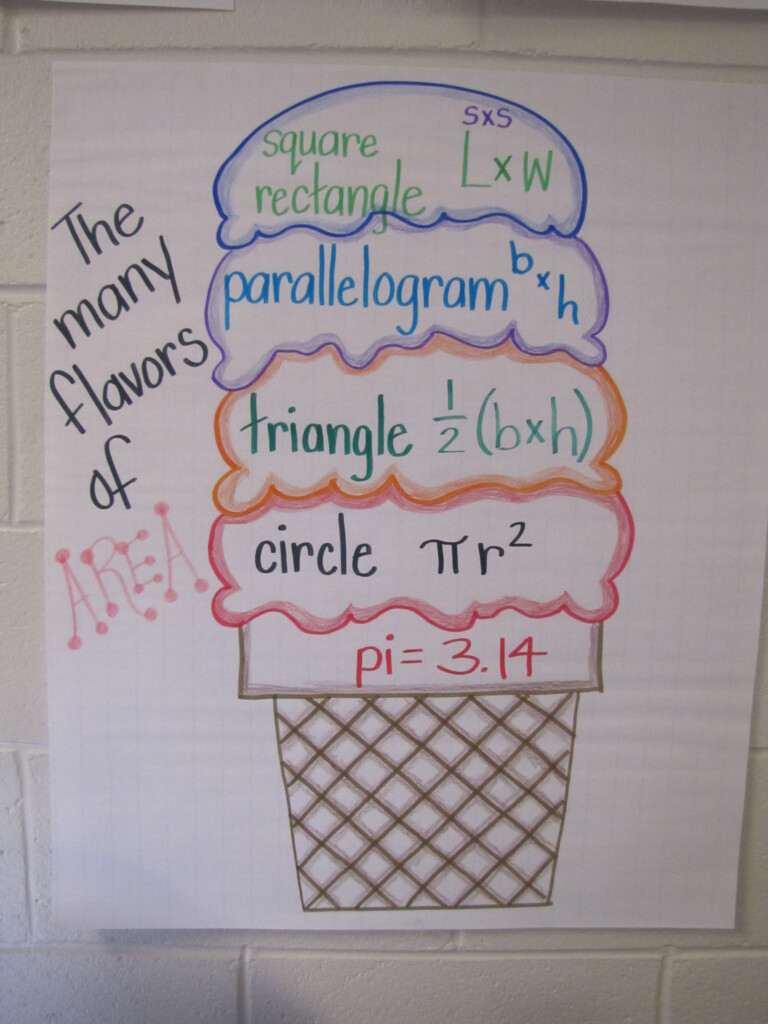 The
many
flavors
of
AREA
square sxs
rectangle LxW
parallelogram b x h
triangle 1/2 (bxh)
circle πr²
pi = 3.14